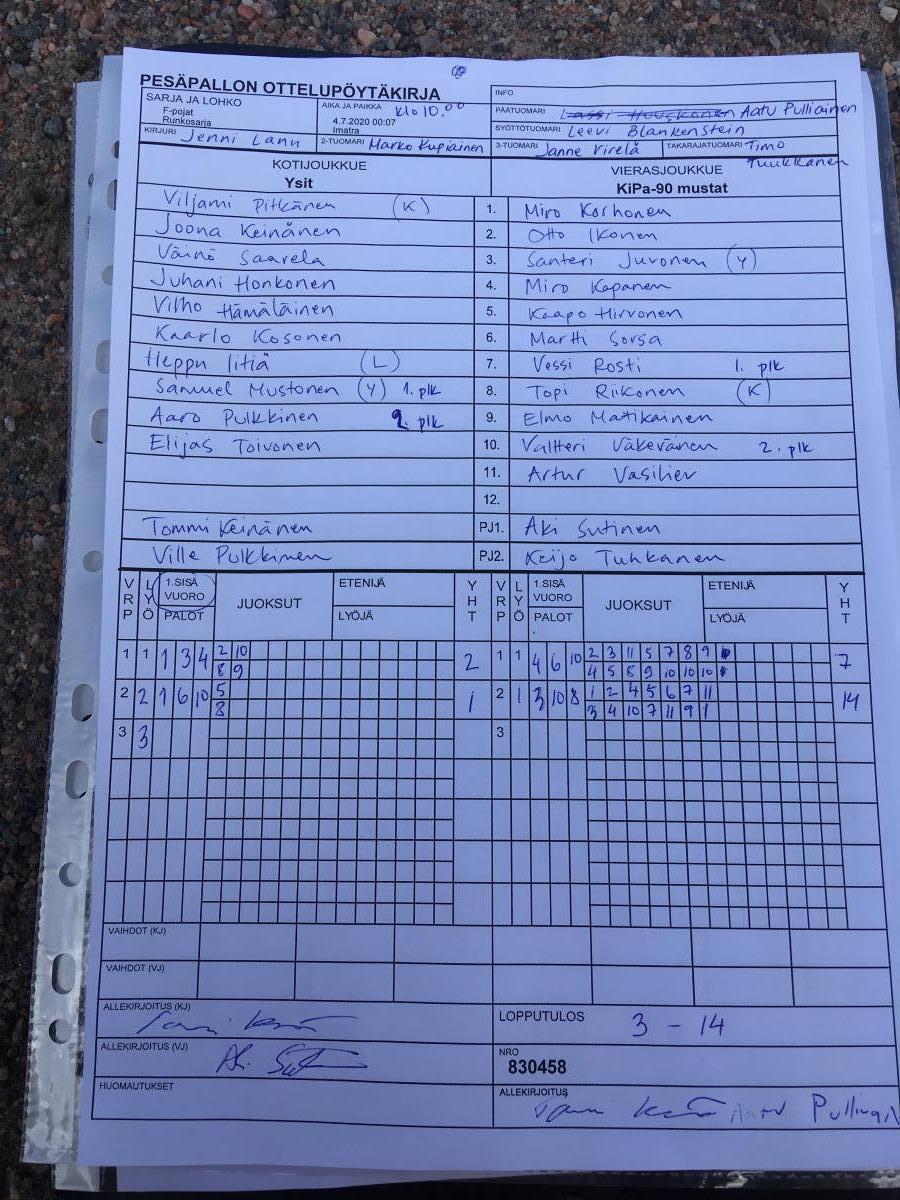 PESÄPALLON OTTELUPÖYTÄKIRJA
INFO
SARJA JA LOHKO
F-pojat
Runkosarja
AIKA JA PAIKKA klo 10.00
4.7.2020 00:07
Imatra
PÄÄTUOMARI Aatu Pulliainen
SYÖTTÖTUOMARI Leevi Blankenstein
KIRJURI Jenni Lann
2-TUOMARI Marko Kupiainen
3-TUOMARI Janne Virelä
TAKARAJATUOMARI Timo Tuukkanen
KOTIJOUKKUE
Ysit
VIERASJOUKKUE
KiPa-90 mustat
Viljami Pitkänen (K) 1. Miro Korhonen
Joona Keinänen 2. Otto Ikonen
Väinö Saarela 3. Santeri Juvonen (Y)
Juhani Honkonen 4. Miro Kapanen
Vilho Hämäläinen 5. Kaapo Hirvonen
Kaarlo Kosonen 6. Martti Sorsa
Heppu Iitiä (L) 7. Vessi Rosti 1. plk
Samuel Mustonen (Y) 1. plk 8. Topi Riikonen (K)
Aaro Pulkkinen 2. plk 9. Elmo Matikainen
Elijas Toivonen 10. Valtteri Väkeväinen 2. plk
11. Artur Vasiliev
12.
Tommi Keinänen PJ1. Aki Sutinen
Ville Pulkkinen PJ2. Keijo Tuhkanen
VRP LYÖ 1.SISÄ VUORO PALOT JUOKSUT ETENIJÄ LYÖJÄ YHT VRP LYÖ 1.SISÄ VUORO PALOT JUOKSUT ETENIJÄ LYÖJÄ YHT
1 1 1 3 4 2 10 2 1 1 4 6 10 2 3 11 5 7 8 9 7
8 9 4 5 8 9 10 10 10
2 2 1 6 10 5 1 2 1 3 10 8 1 2 4 5 6 7 11 14
8 3 4 10 7 11 9 1
3 3 3
VAIHDOT (KJ)
VAIHDOT (VJ)
ALLEKIRJOITUS (KJ)
LOPPUTULOS 3 - 14
ALLEKIRJOITUS (VJ)
NRO
830458
HUOMAUTUKSET
ALLEKIRJOITUS